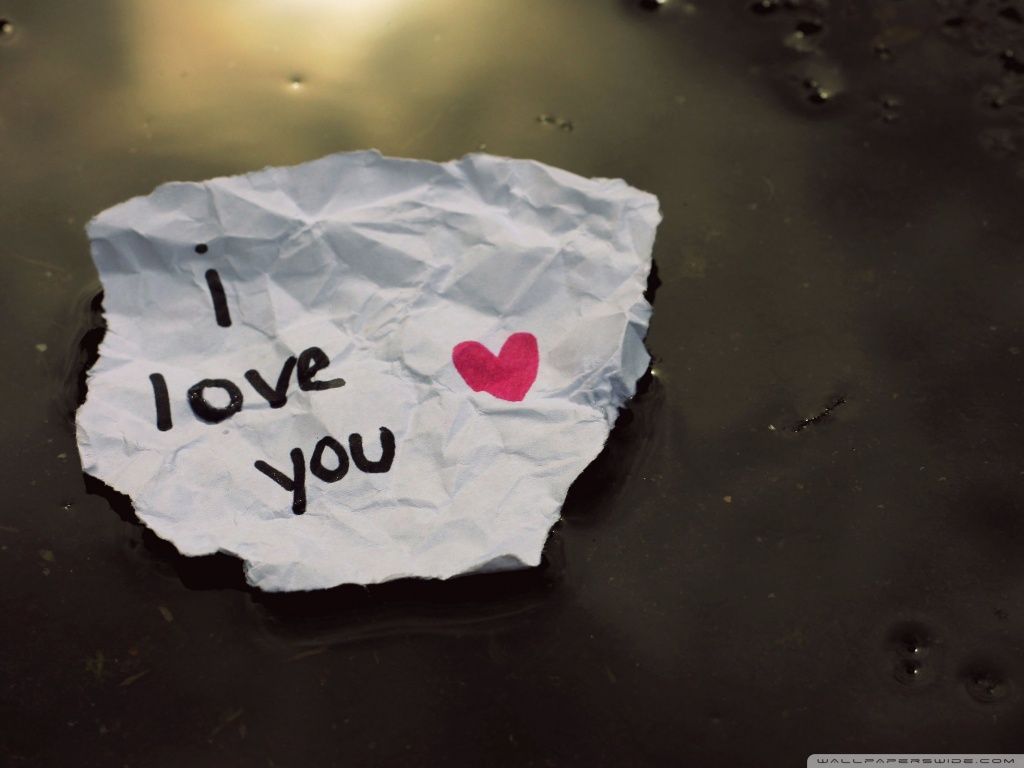 i
love
you
WALLPAPERSWIDE.COM